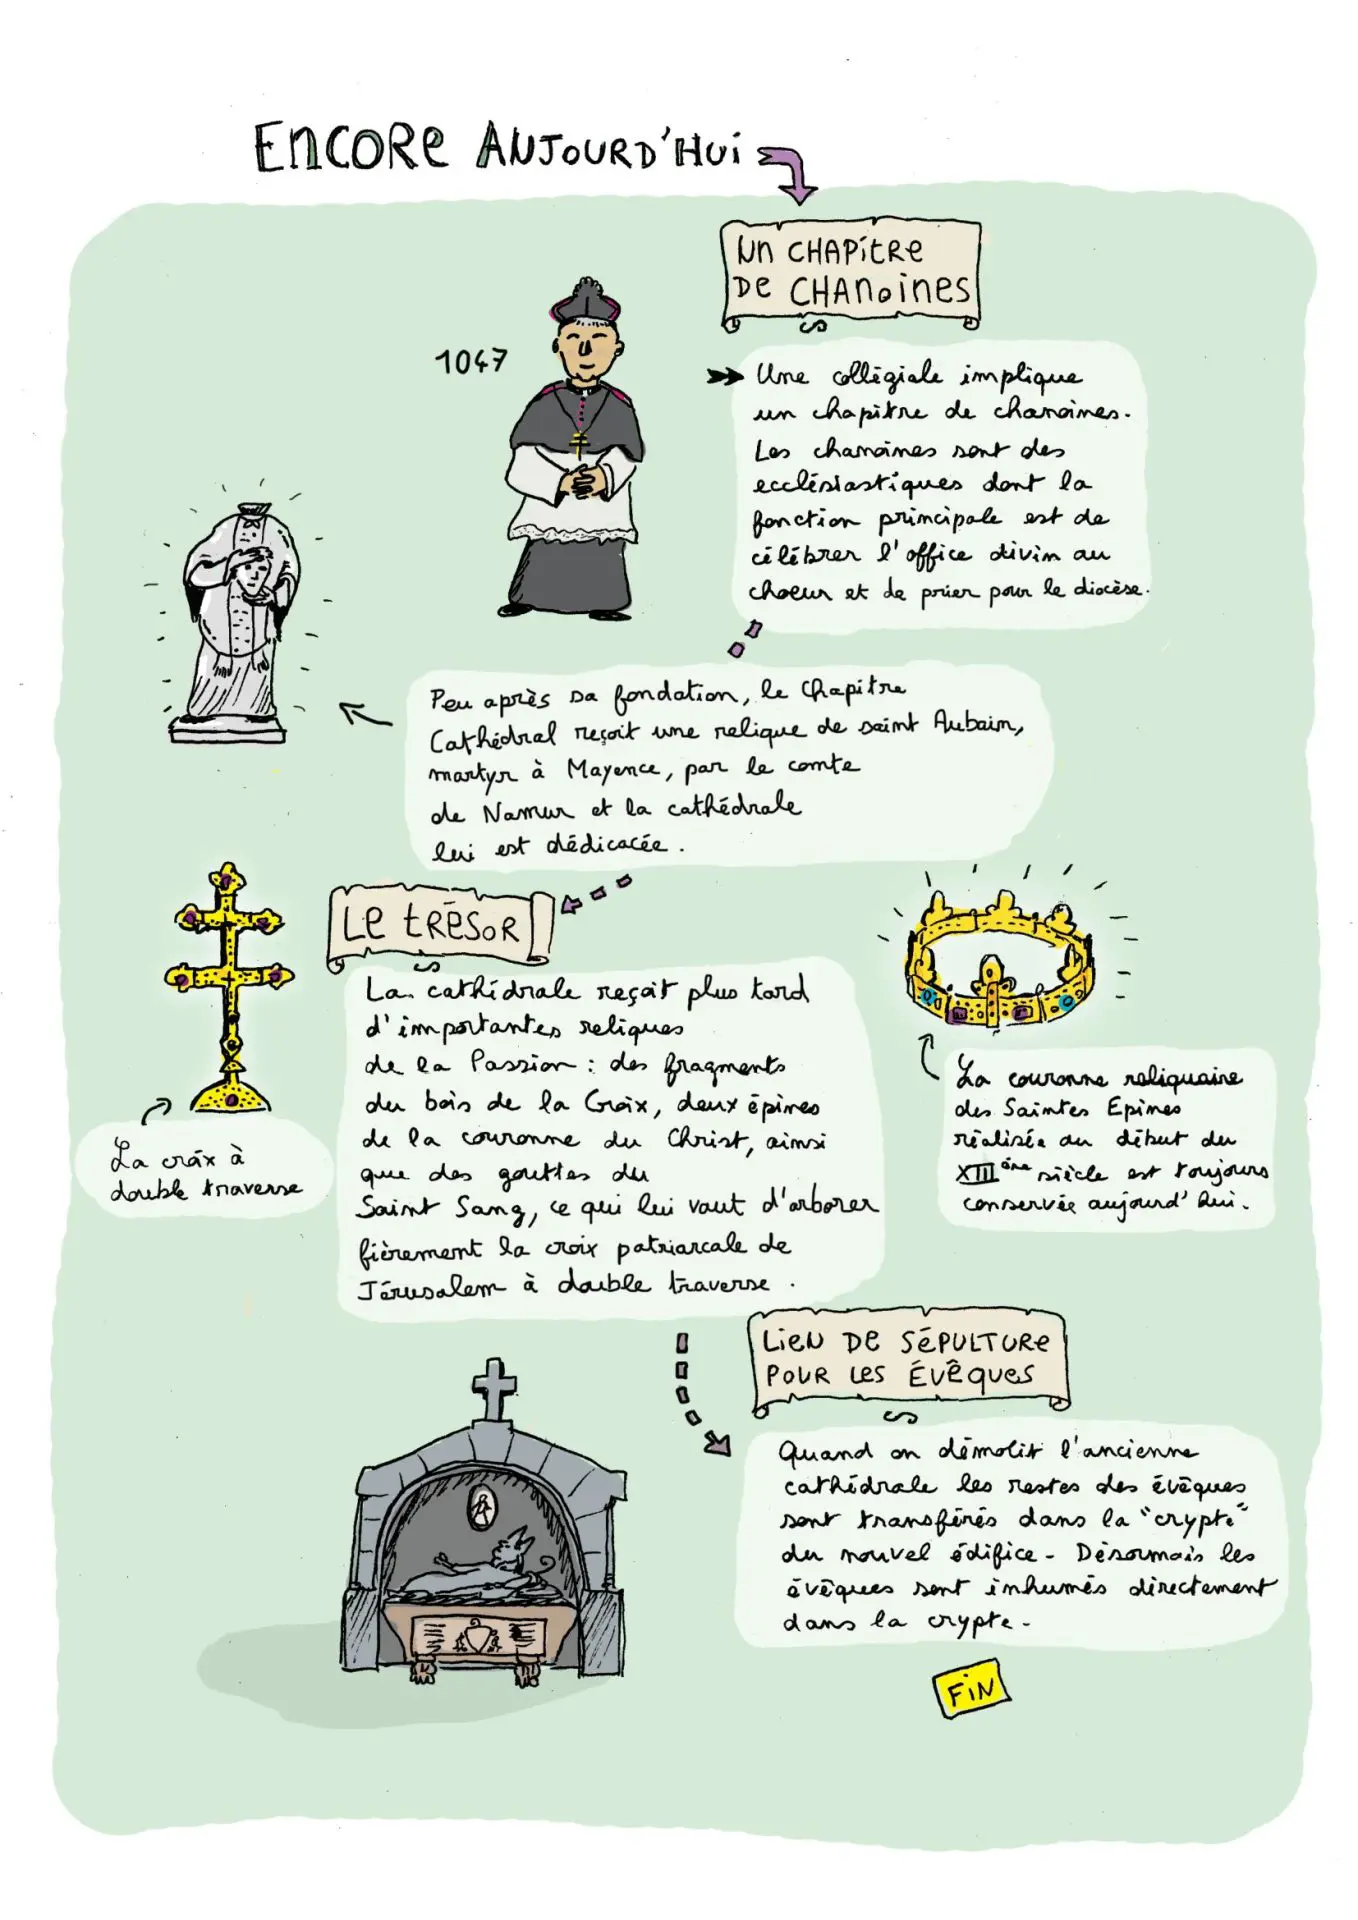 ENCORE AUJOURD'HUI
UN CHAPITRE
DE CHANOINES
1047
Une collégiale implique
un chapitre de chanoines.
Les chanoines sont des
ecclésiastiques dont la
fonction principale est de
célébrer l'office divin au
choeur et de prier pour le diocèse.
Peu après sa fondation, le Chapitre
Cathédral reçoit une relique de saint Aubain,
martyr à Mayence, par le comte
de Namur et la cathédrale
lui est dédicacée.
LE TRÉSOR
La cathédrale reçoit plus tard
d'importantes reliques
de la Passion : des fragments
du bois de la Croix, deux épines
de la couronne du Christ, ainsi
que des gouttes du
Saint Sang, ce qui lui vaut d'arborer
fièrement la croix patriarcale de
Jérusalem à double traverse.
La croix à
double traverse
La couronne reliquaire
des Saintes Epines
réalisée au début du
XIIIème siècle est toujours
conservée aujourd'hui.
LIEU DE SÉPULTURE
POUR LES ÉVÊQUES
Quand on démolit l'ancienne
cathédrale les restes des évêques
sont transférés dans la "crypte"
du nouvel édifice - Désormais les
évêques sont inhumés directement
dans la crypte.
FIN